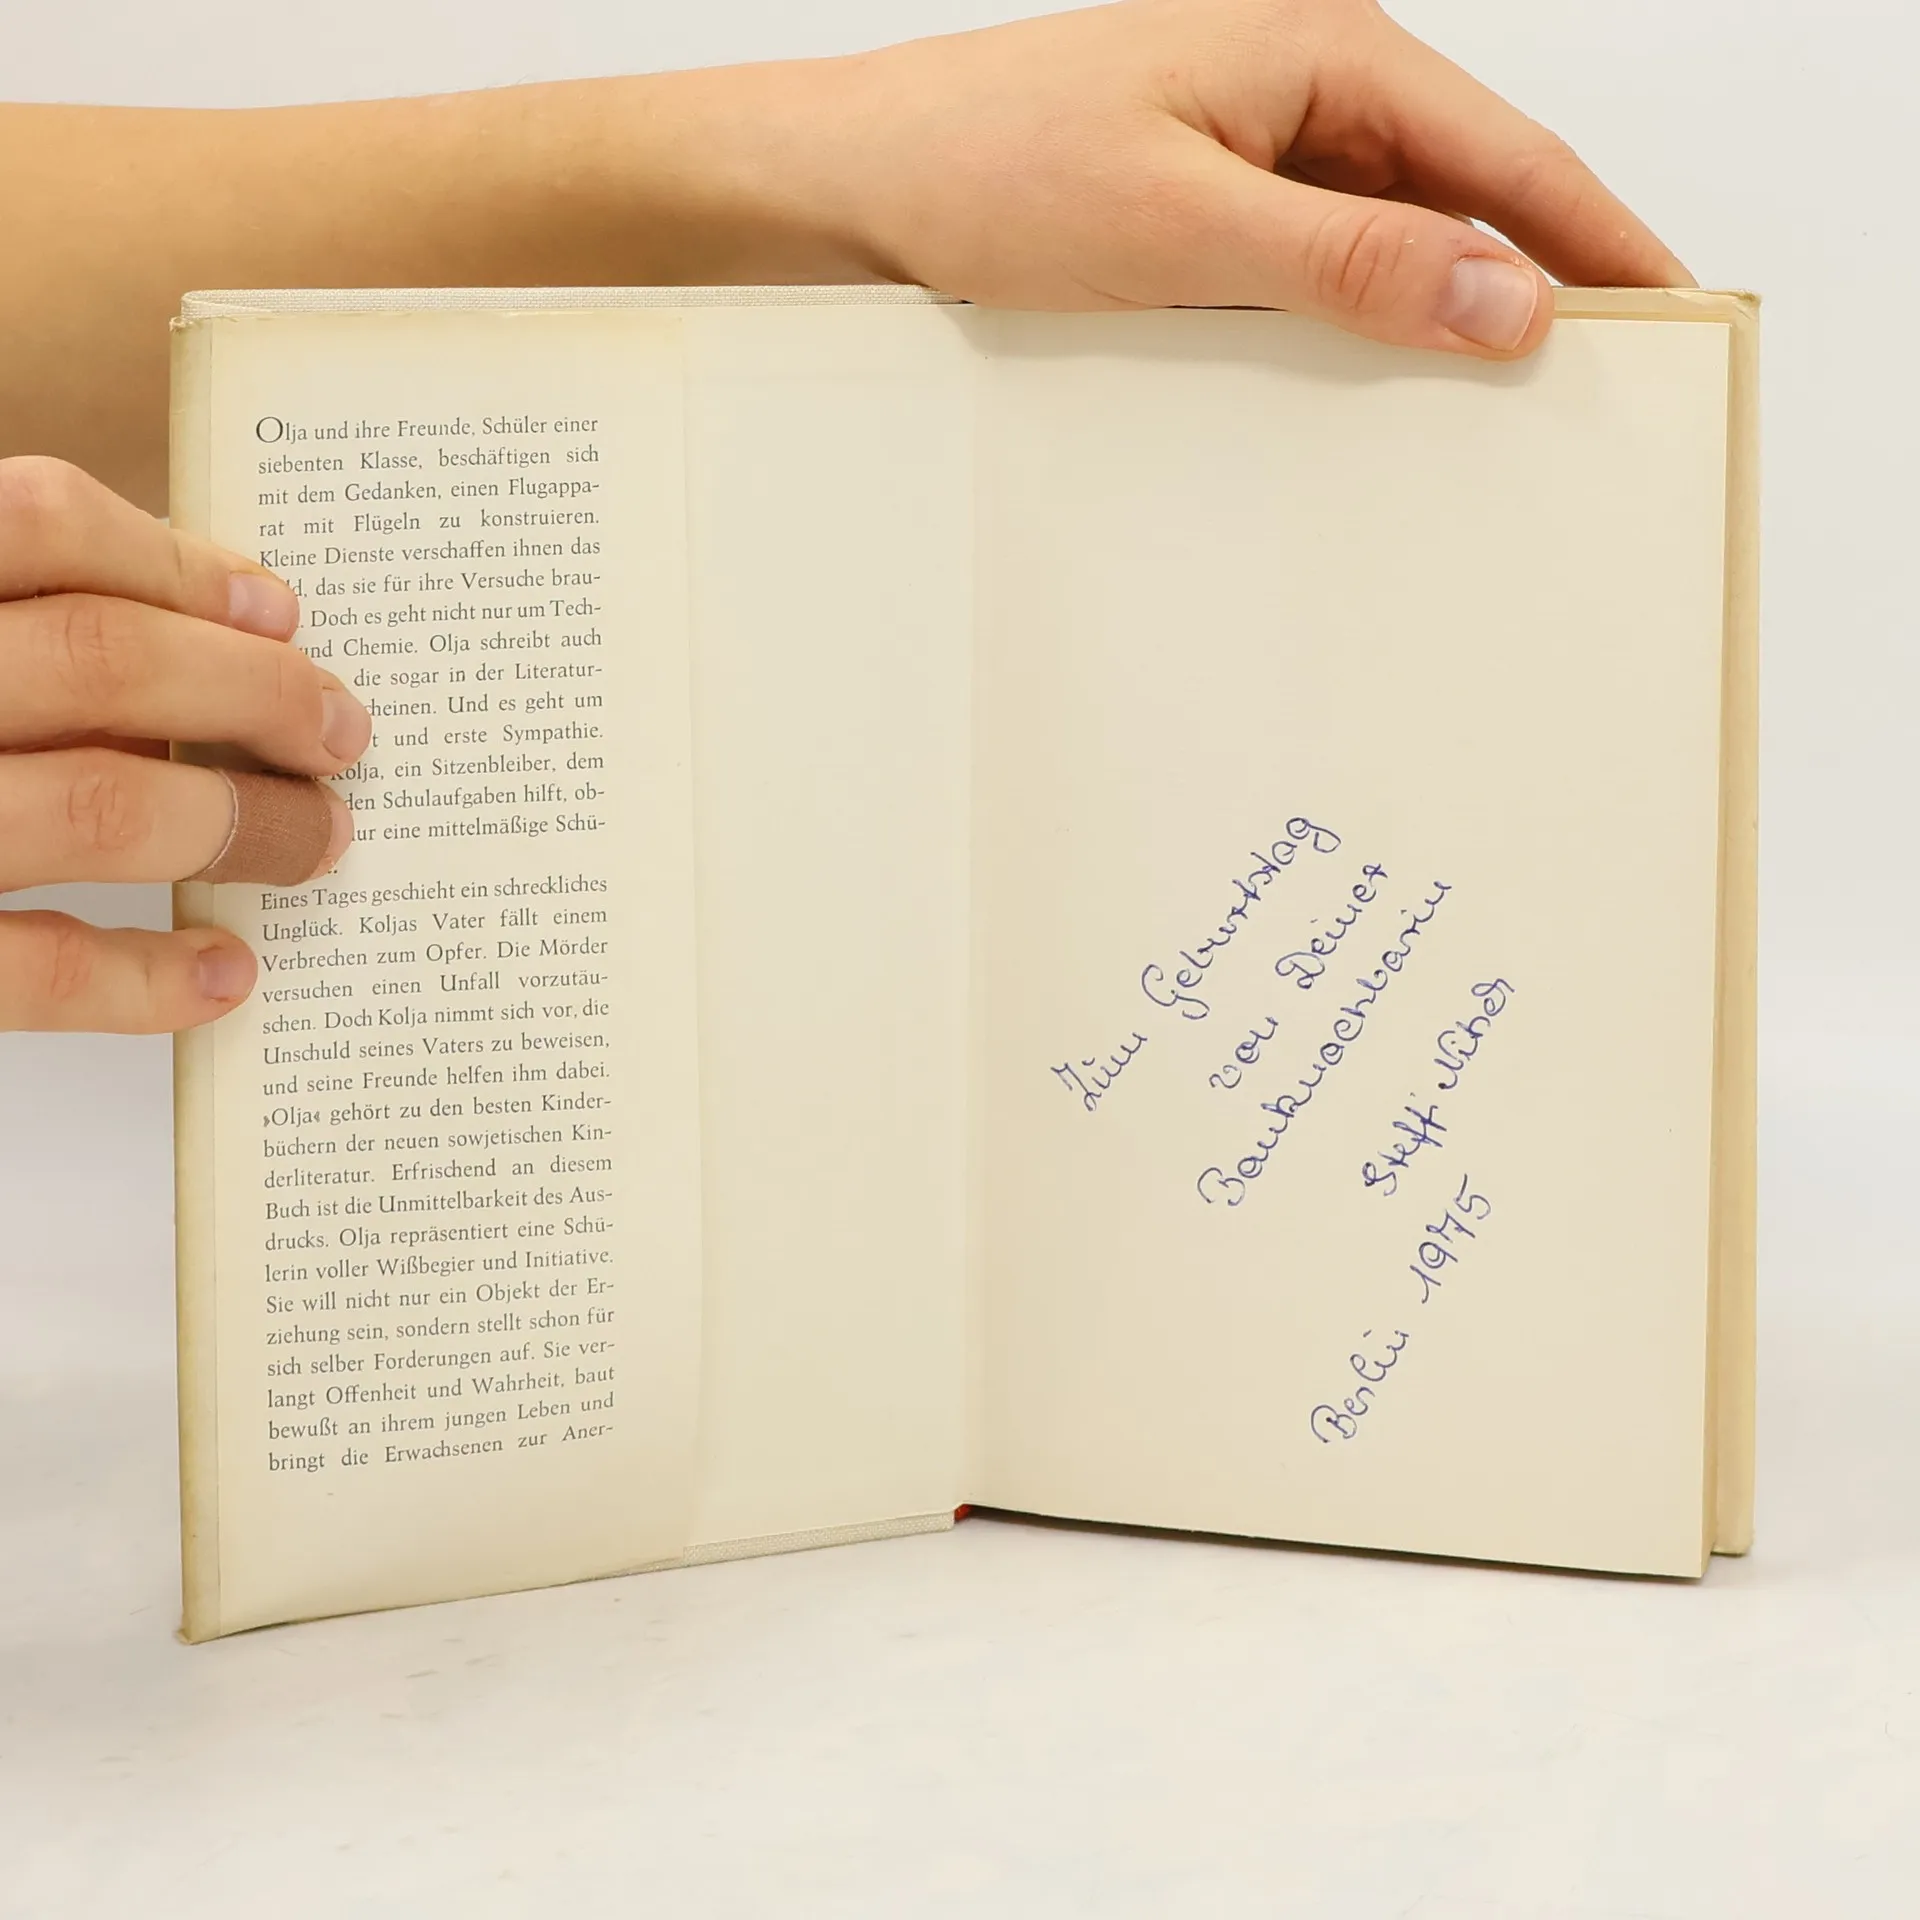 Olja und ihre Freunde, Schüler einer
siebenten Klasse, beschäftigen sich
mit dem Gedanken, einen Flugappa-
rat mit Flügeln zu konstruieren.
Kleine Dienste verschaffen ihnen das
das sie für ihre Versuche brau-
Doch es geht nicht nur um Tech-
und Chemie. Olja schreibt auch
die sogar in der Literatur-
Und es geht um
und erste Sympathie.
Kolja, ein Sitzenbleiber, dem
den Schulaufgaben hilft, ob-
nur eine mittelmäßige Schü-
Eines Tages geschieht ein schreckliches
Unglück. Koljas Vater fällt einem
Verbrechen zum Opfer. Die Mörder
versuchen einen Unfall vorzutäu-
schen. Doch Kolja nimmt sich vor, die
Unschuld seines Vaters zu beweisen,
und seine Freunde helfen ihm dabei.
›Olja‹ gehört zu den besten Kinder-
büchern der neuen sowjetischen Kin-
derliteratur. Erfrischend an diesem
Buch ist die Unmittelbarkeit des Aus-
drucks. Olja repräsentiert eine Schü-
lerin voller Wißbegier und Initiative.
Sie will nicht nur ein Objekt der Er-
ziehung sein, sondern stellt schon für
sich selber Forderungen auf. Sie ver-
langt Offenheit und Wahrheit, baut
bewußt an ihrem jungen Leben und
bringt die Erwachsenen zur Aner-
Zum Geburtstag
von Deiner
Banknachbarin
Steffi
Berlin 1975